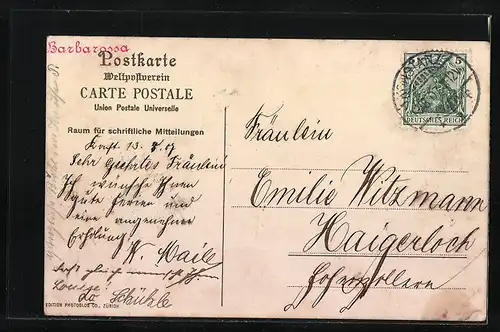 Barbarossa
Postkarte
Weltpostverein
CARTE POSTALE
Union Postale Universelle
Raum für schriftliche Mitteilungen
13. 8. 07
Sehr Geehrtes Fräulein!
Ich wünsche Ihnen
gute Ferien und
eine angenehme
Erholung
W. Maile
Schühle
EDITION PHOTOGLOB CO., ZÜRICH
KONSTANZ
5
DEUTSCHES REICH
Fräulein
Emilie Witzmann
Haigerloch
Hohenzollern